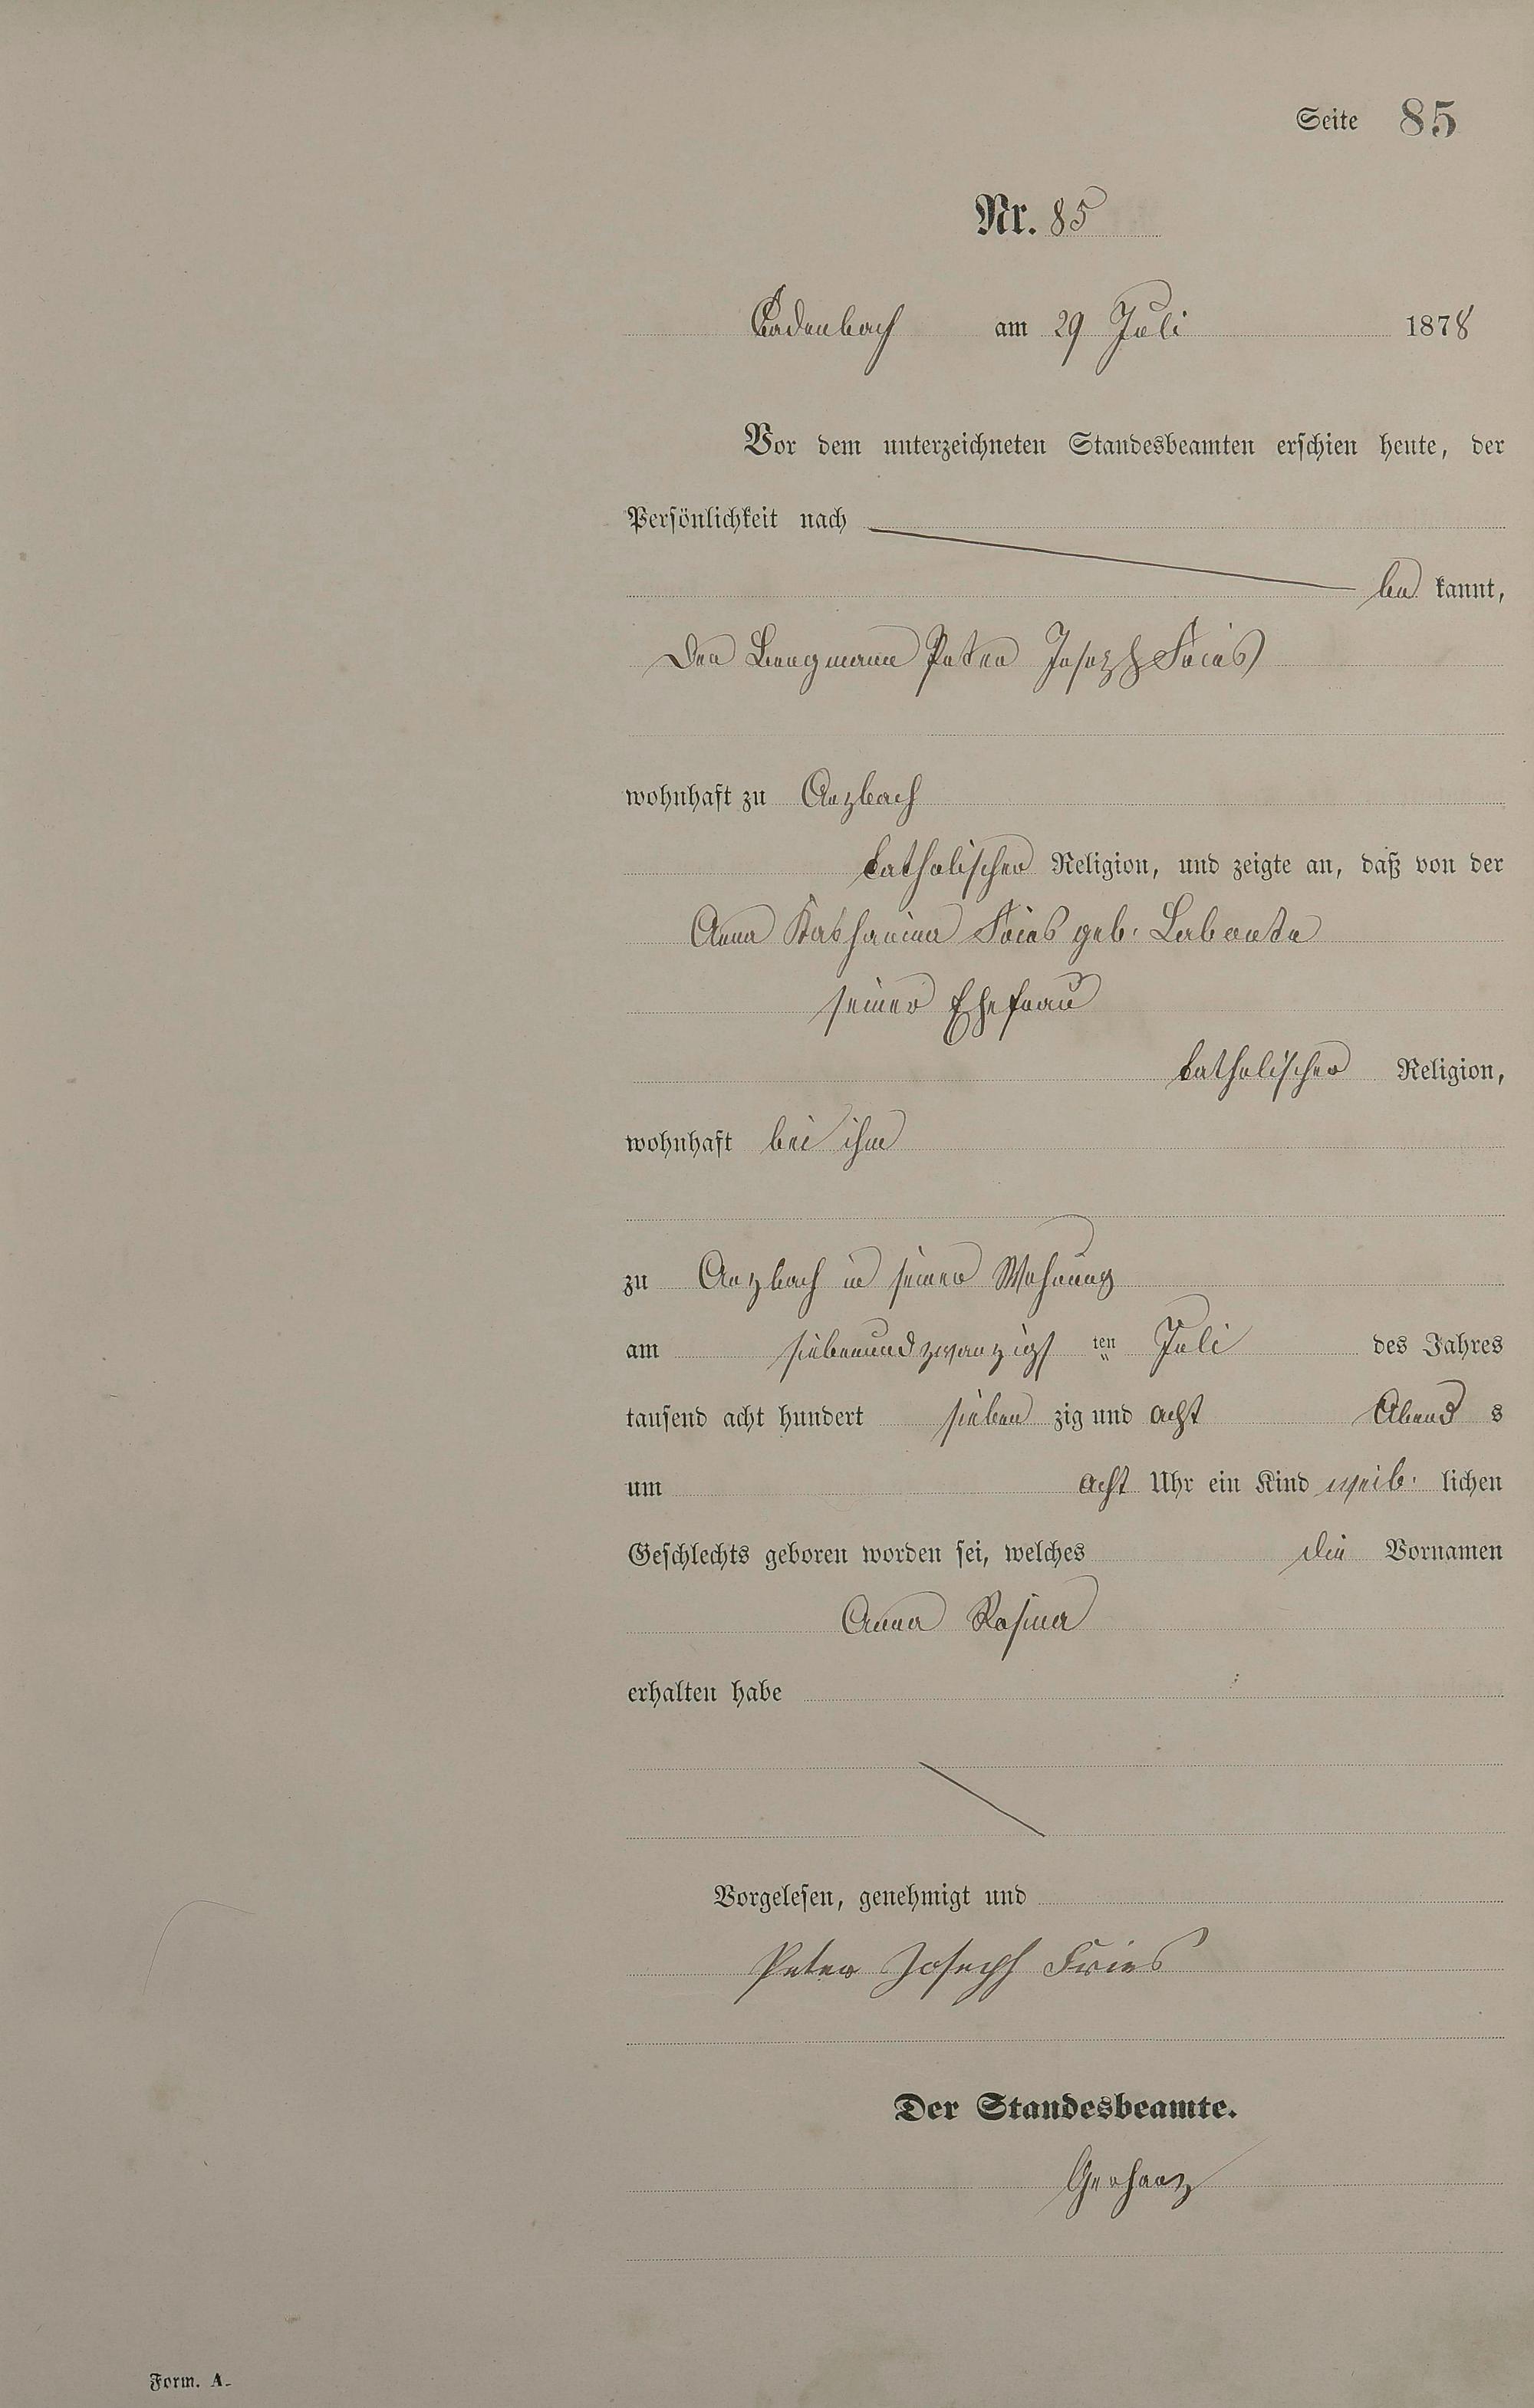 Seite 85
Nr. 85
Cadenbach am 29 Juli 1878
Vor dem unterzeichneten Standesbeamten erschien heute, der
Persönlichkeit nach
be kannt,
Der Bergmann Peter Joseph Fries
wohnhaft zu Arzbach
katholischer Religion, und zeigte an, daß von der
Anna Katharina Fries geb. Labonte
seiner Ehefrau
katholischer Religion,
wohnhaft bei ihm
zu Arzbach in seiner Wohnung
am siebenundzwanzigs ten Juli des Jahres
tausend acht hundert sieben zig und acht Abend s
um acht Uhr ein Kind weib. lichen
Geschlechts geboren worden sei, welches die Vornamen
Anna Rosina
erhalten habe
Vorgelesen, genehmigt und
Peter Joseph Fries
Der Standesbeamte.
Gerharz
Form. A.